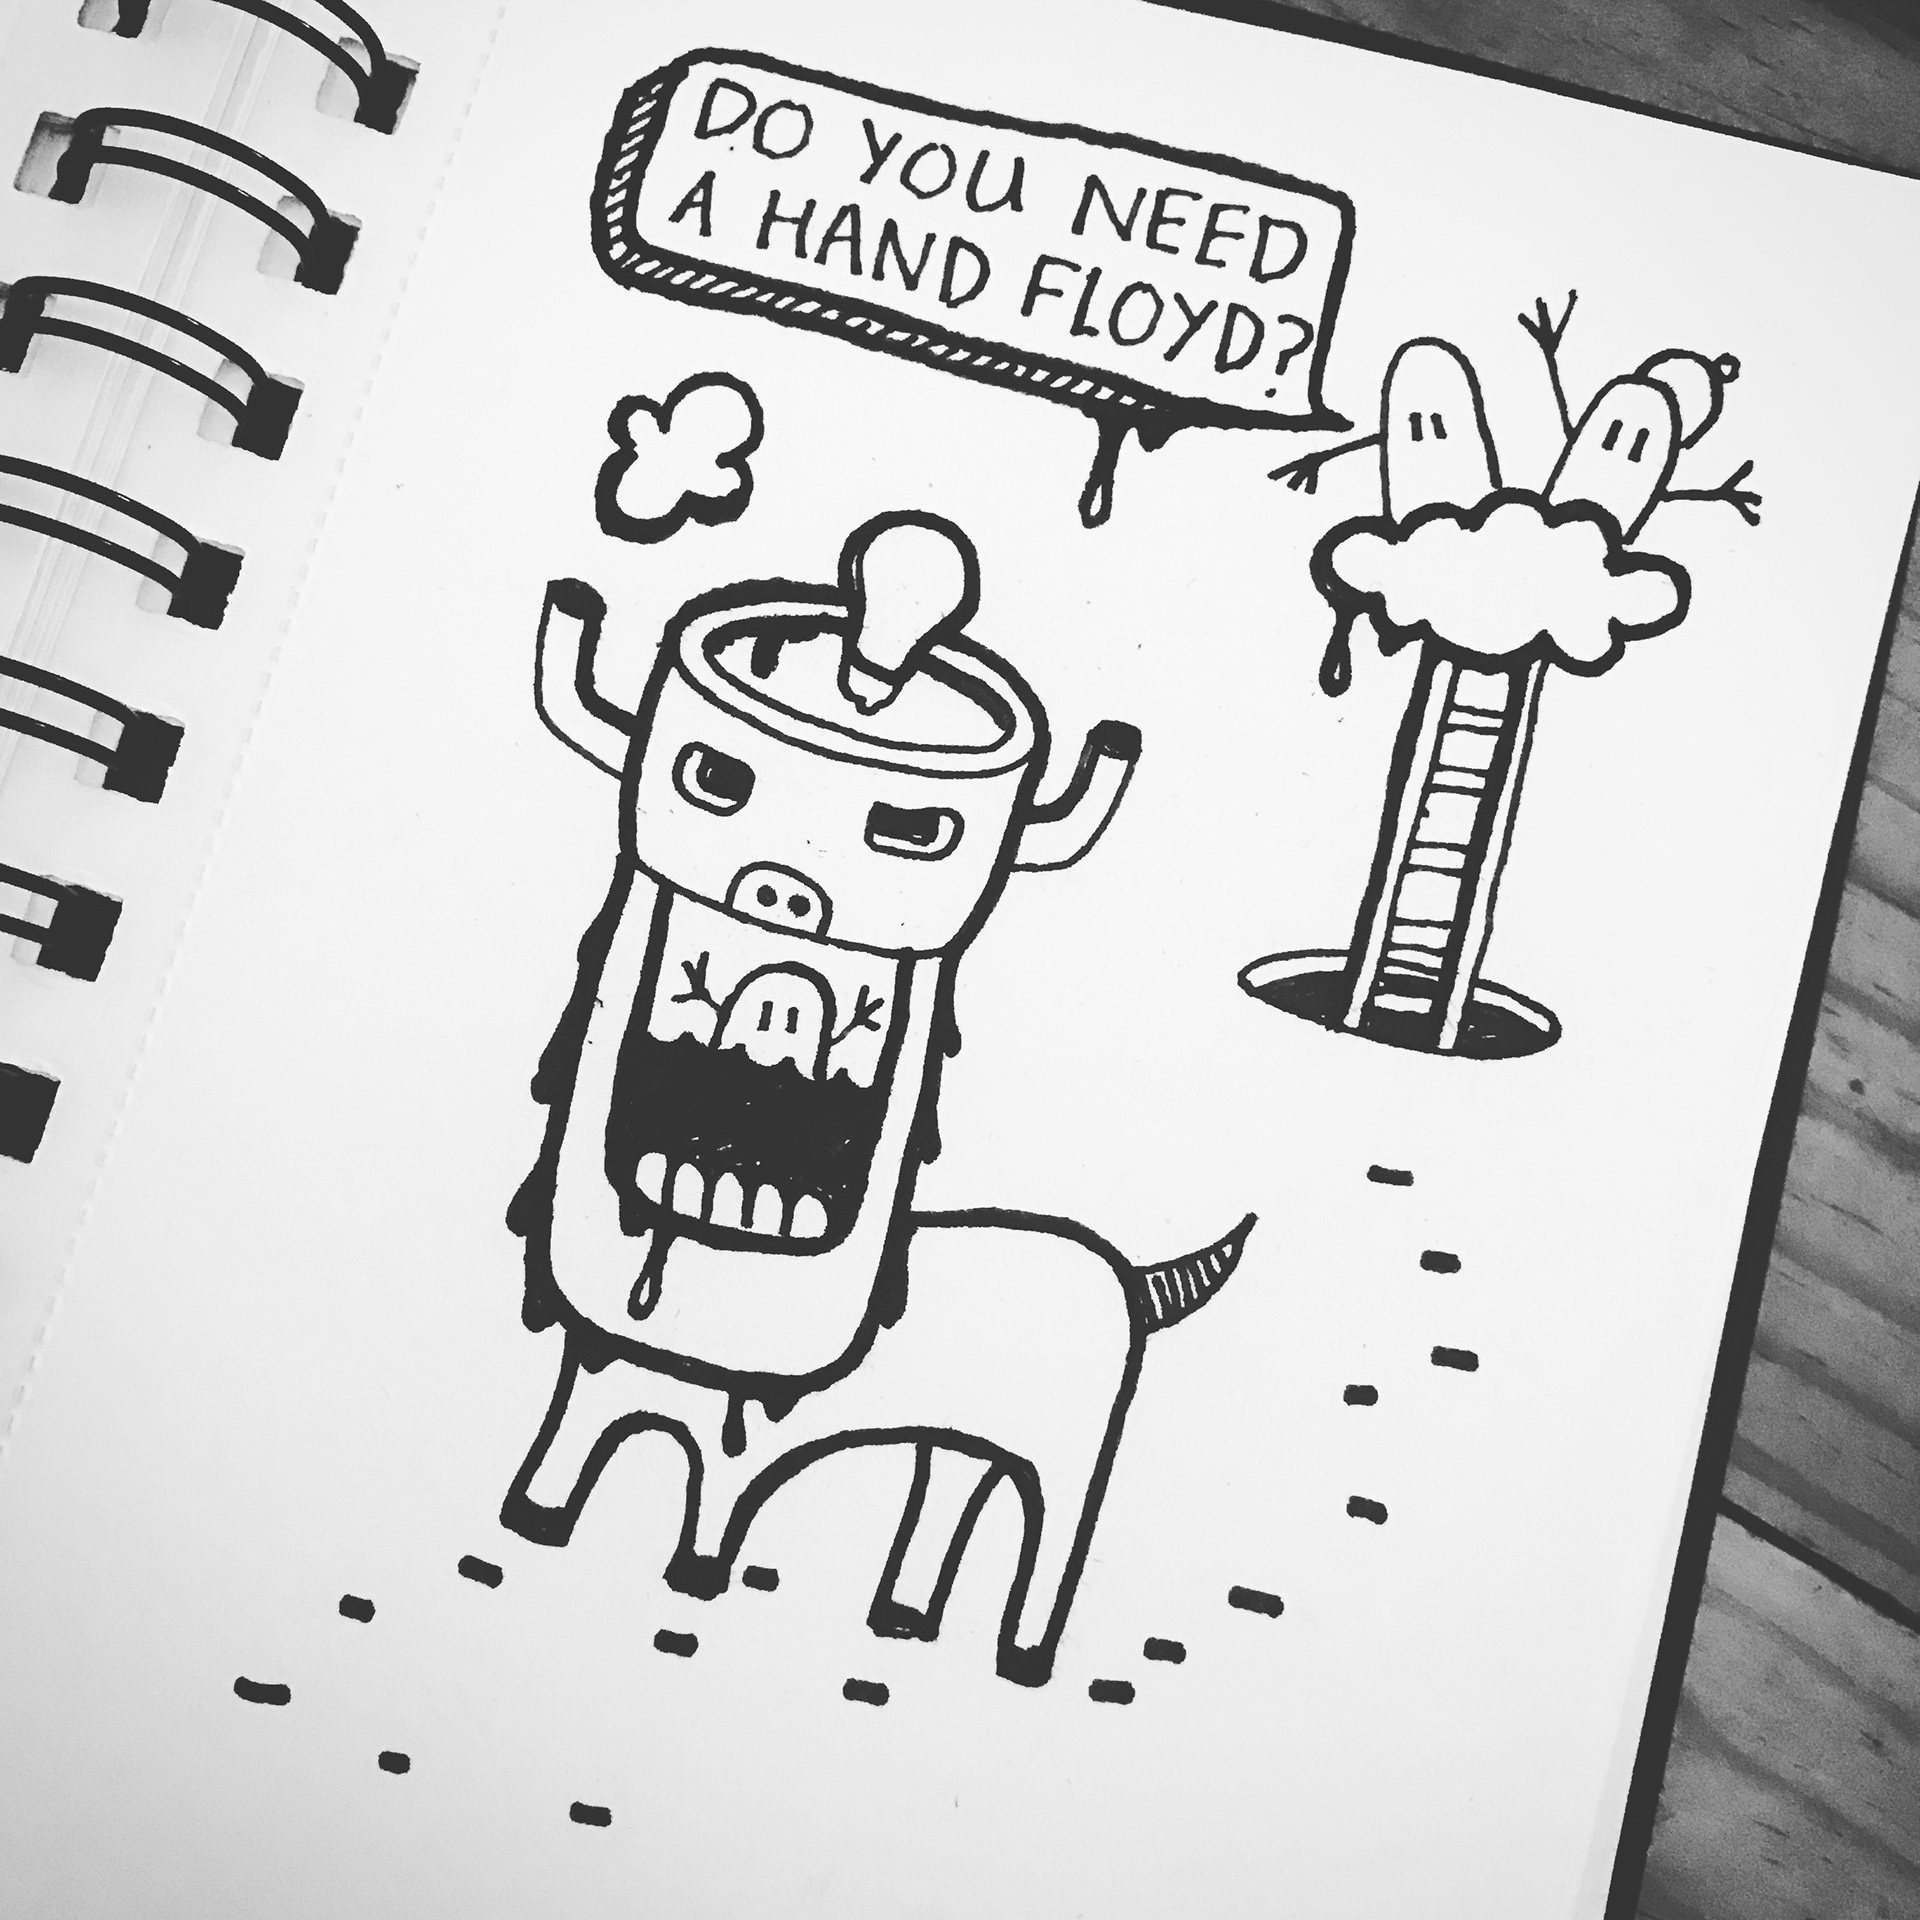 DO YOU NEED
A HAND FLOYD?